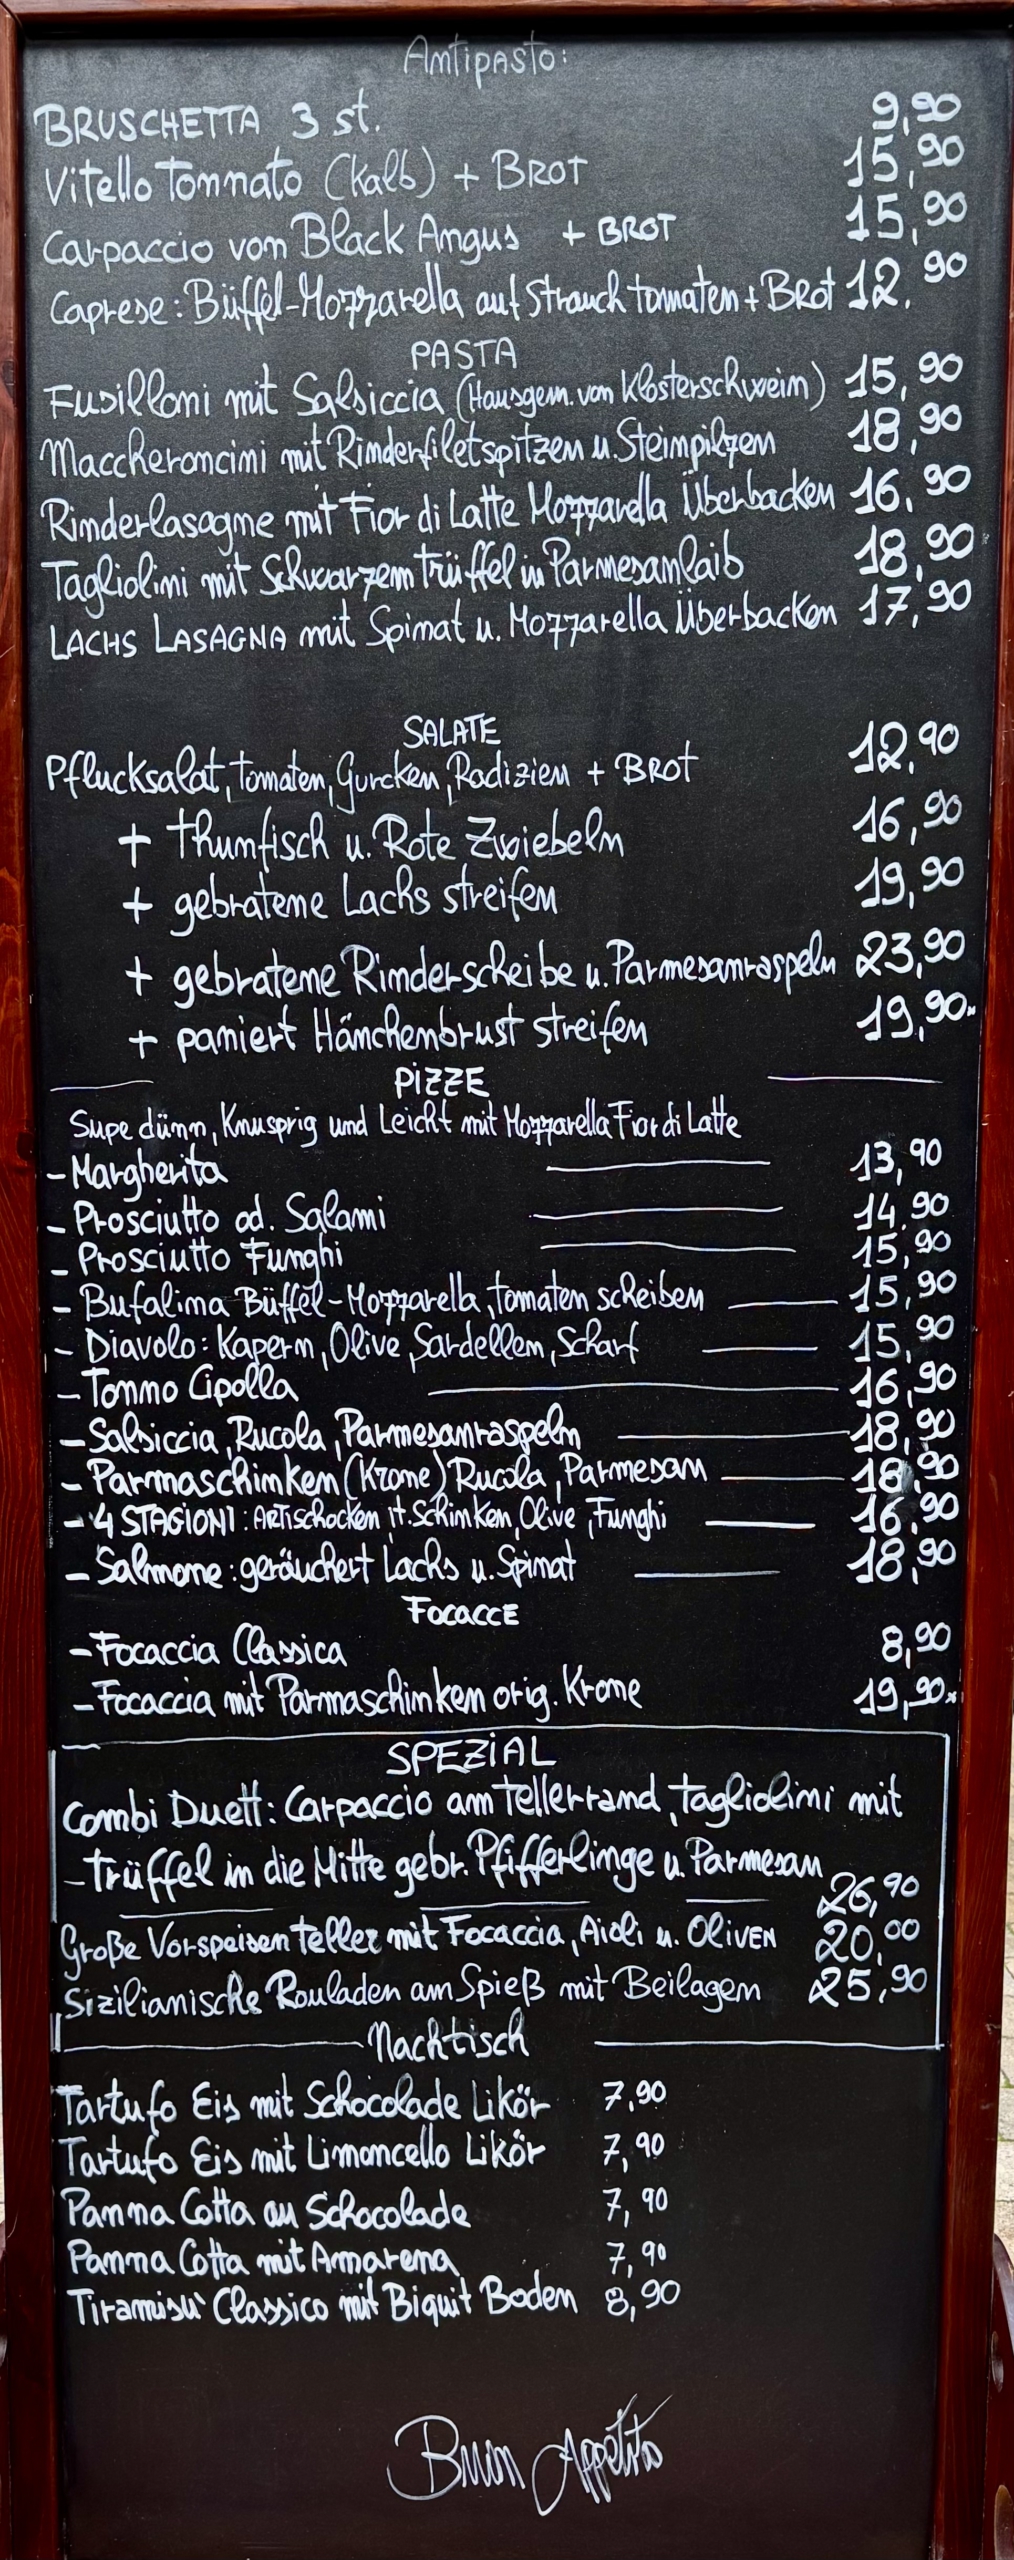 Antipasto:
BRUSCHETTA 3 st. 9,90
Vitello Tonnato (Kalb) + BROT 15,90
Carpaccio vom Black Angus + BROT 15,90
Caprese: Büffel-Mozzarella auf Strauch tomaten + BROT 12,90
PASTA
Fusilloni mit Salsiccia (Hausgem. von Klosterschwein) 15,90
Maccheroncini mit Rinderfiletspitzen u. Steinpilzen 18,90
Rinderlasagne mit Fior di Latte Mozzarella Überbacken 16,90
Tagliolini mit Schwarzem Trüffel in Parmesanlaib 18,90
LACHS LASAGNA mit Spinat u. Mozzarella Überbacken 17,90
SALATE
Pflucksalat, Tomaten, Gurcken, Radizien + BROT 12,90
+ Thunfisch u. Rote Zwiebeln 16,90
+ gebratene Lachs streifen 19,90
+ gebratene Rinderscheibe u. Parmesanraspeln 23,90
+ paniert Hänchenbrust streifen 19,90
PIZZE
Supe dünn, Knusprig und Leicht mit Mozzarella Fior di Latte
- Margherita 13,90
- Prosciutto od. Salami 14,90
- Prosciutto Funghi 15,90
- Bufalina Büffel-Mozzarella, tomaten scheiben 15,90
- Diavolo: Kapern, Olive, Sardellen, Scharf 15,90
- Tonno Cipolla 16,90
- Salsiccia, Rucola, Parmesanraspeln 18,90
- Parmaschinken (Krone) Rucola, Parmesan 18,90
- 4 STAGIONI: ARTischocken, it. Schinken, Olive, Funghi 16,90
- Salmone: geräuchert Lachs u. Spinat 18,90
FOCACCE
- Focaccia Classica 8,90
- Focaccia mit Parmaschinken orig. Krone 19,90
SPEZiAL
Combi Duett: Carpaccio am Tellerrand, Tagliolini mit
- Trüffel in die Mitte gebr. Pfifferlinge u. Parmesan 26,90
Große Vorspeisen Teller mit Focaccia, Aioli u. OLIVEN 20,00
Sizilianische Rouladen am Spieß mit Beilagen 25,90
Nachtisch
Tartufo Eis mit Schocolade Likör 7,90
Tartufo Eis mit Limoncello Likör 7,90
Panna Cotta au Schocolade 7,90
Panna Cotta mit Amarena 7,90
Tiramisù Classico mit Biquit Boden 8,90
Buon Appetito